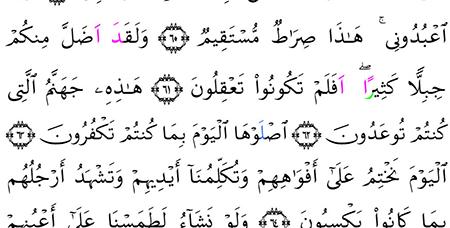 ٱعْبُدُونِي ۚ هَـٰذَا صِرَاطٌ مُّسْتَقِيمٌ ﴿٦٠﴾ وَلَقَدَ اَضَلَّ مِنكُمْ
جِبِلًّا كَثِيرًا ۖ اَفَلَمْ تَكُونُوا۟ تَعْقِلُونَ ﴿٦١﴾ هَـٰذِهِۦ جَهَنَّمُ ٱلَّتِي
كُنتُمْ تُوعَدُونَ ﴿٦٢﴾ ٱصْلَوْهَا ٱلْيَوْمَ بِمَا كُنتُمْ تَكْفُرُونَ ﴿٦٣﴾
ٱلْيَوْمَ نَخْتِمُ عَلَىٰٓ أَفْوَٰهِهِمْ وَتُكَلِّمُنَآ أَيْدِيهِمْ وَتَشْهَدُ أَرْجُلُهُم
بِمَا كَانُوا۟ يَكْسِبُونَ ﴿٦٤﴾ وَلَوْ نَشَآءُ لَطَمَسْنَا عَلَىٰٓ أَعْيُنِهِمْ